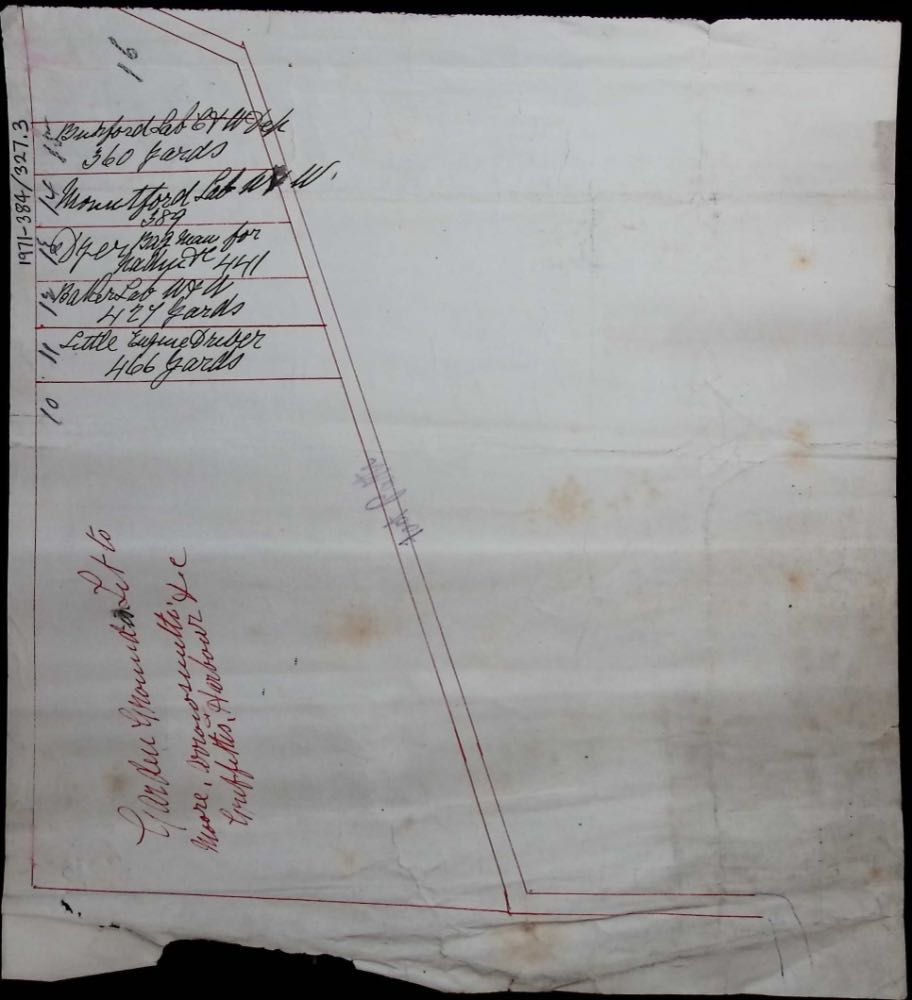 16
1971-384/327.3
15 Burford Lab C & W Dep
360 Yards
14 Mountford Lab W & W.
389
13 Dyer Bag Man for
441
12 Baker Lab W & W
427 Yards
11 Little Engine Driver
466 Yards
10
Garden Ground Let to
Moore, Arrowsmith, &c
Griffiths, Harbour